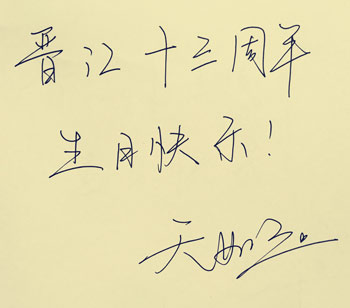 晋江十三周年
生日快乐!
天如玉